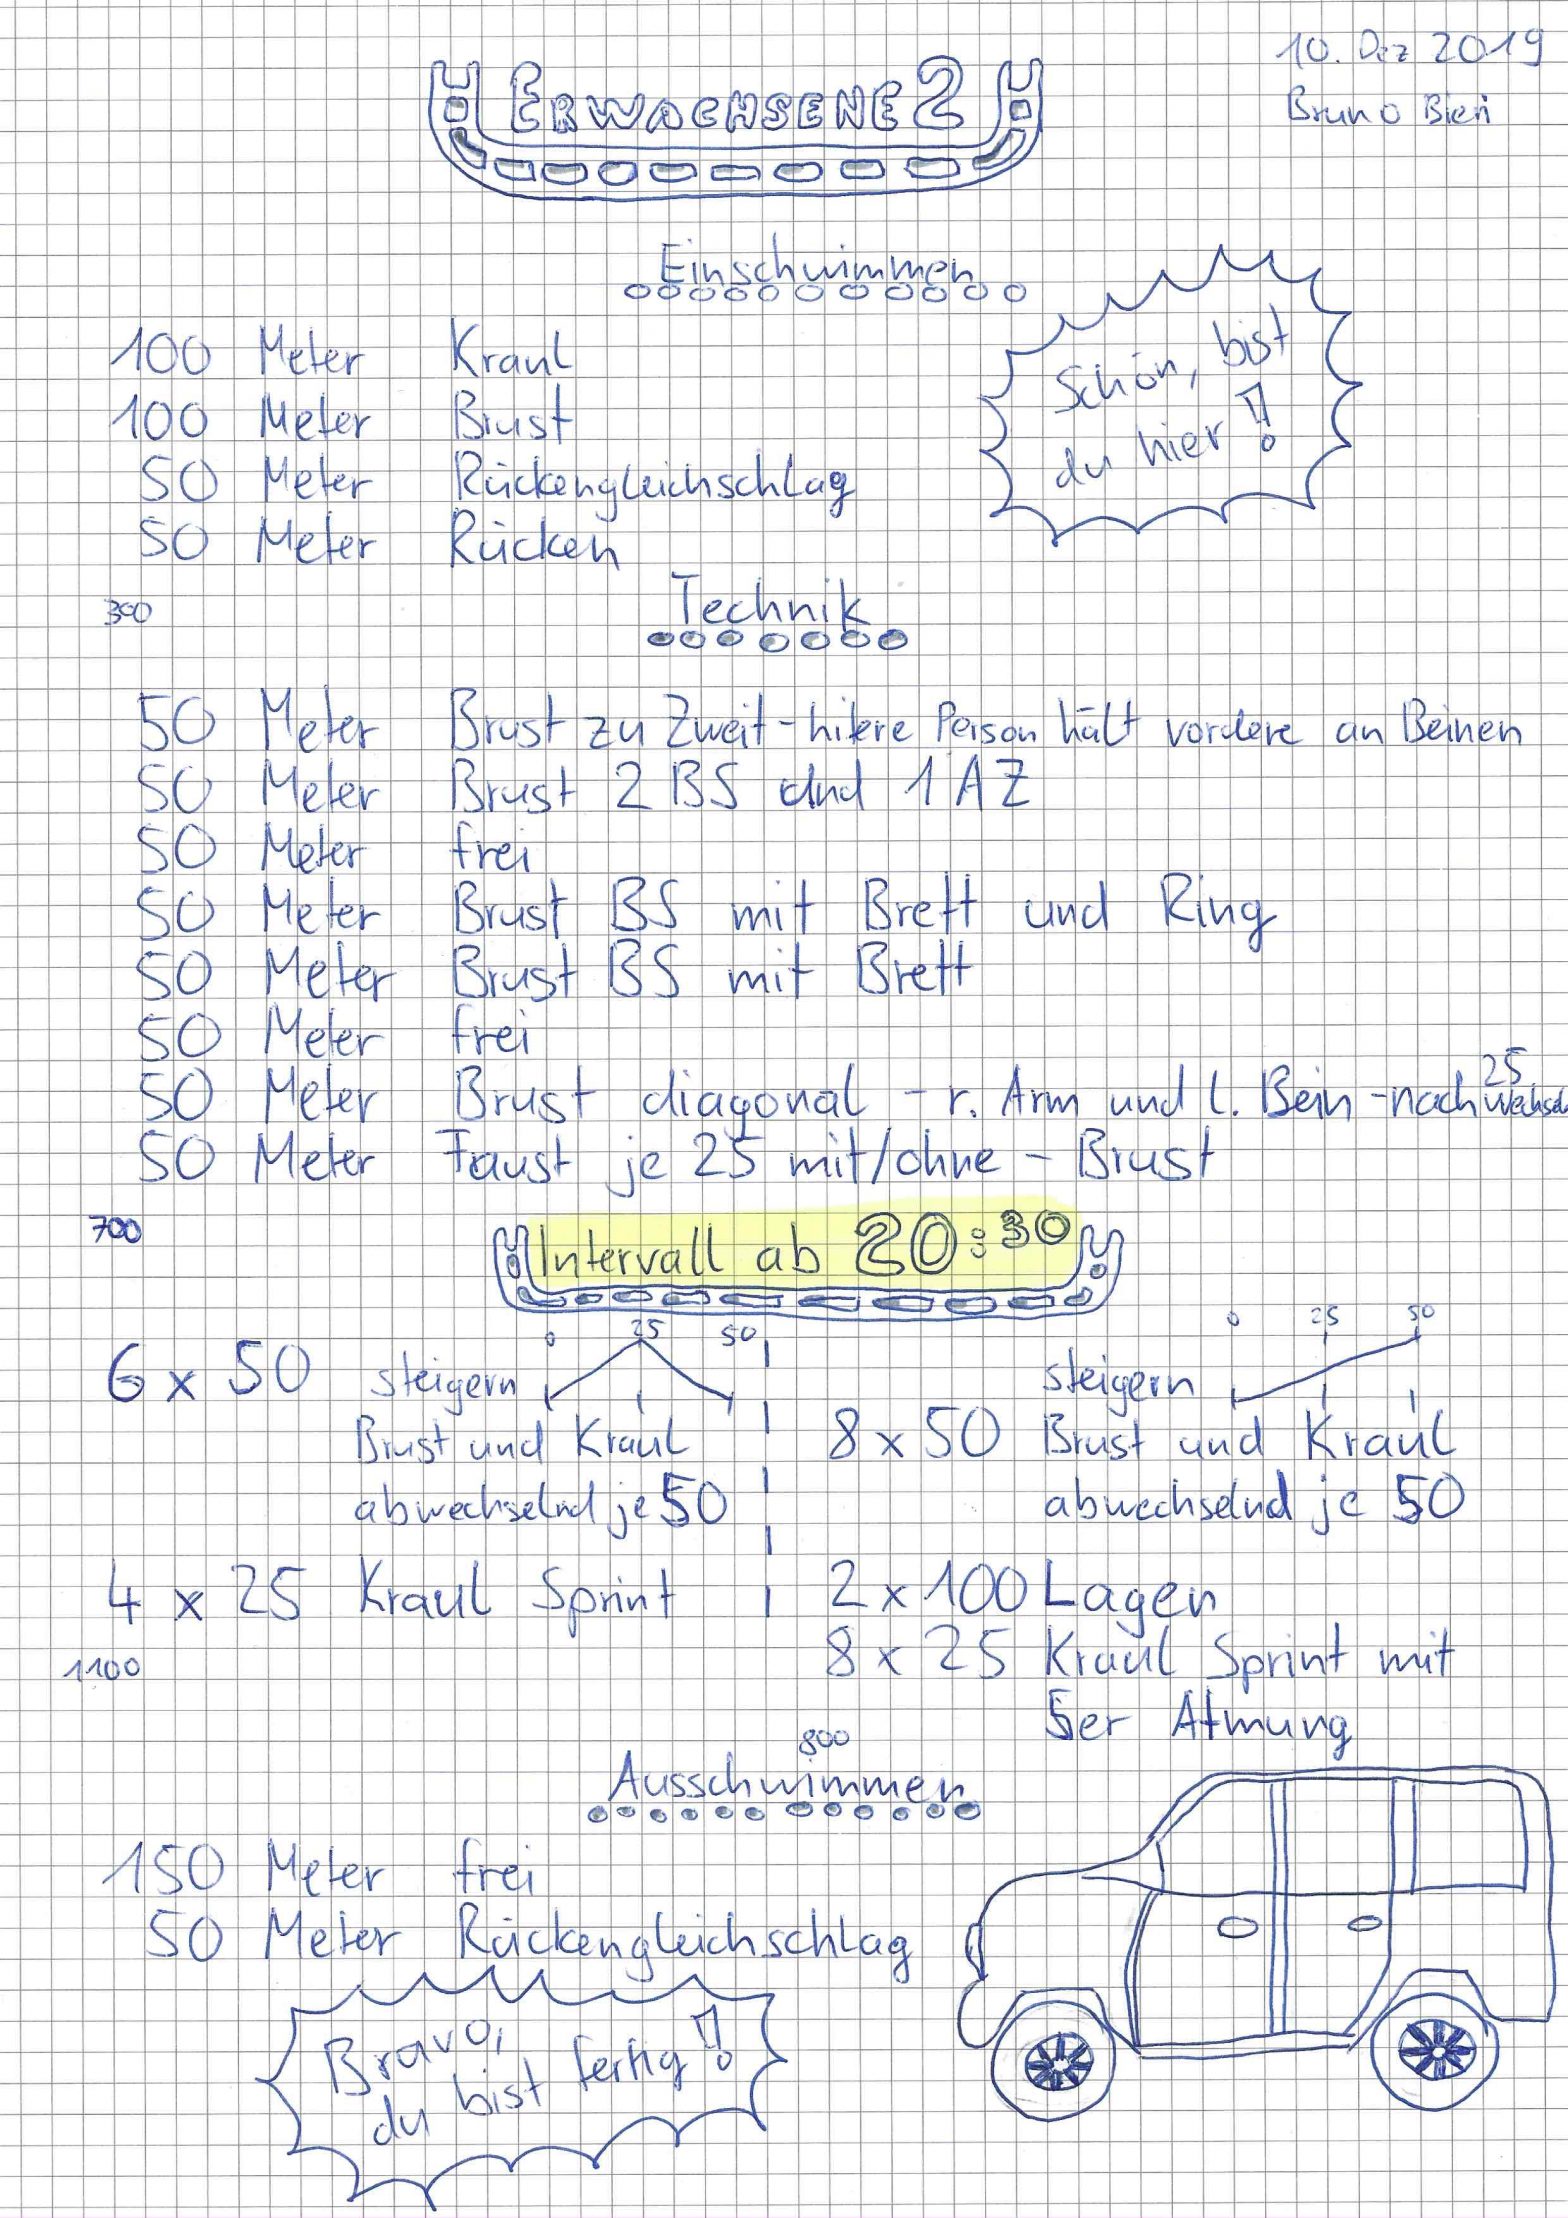 10. Dez 2019
ERWACHSENE 2
Bruno Bieri
Einschwimmen
100 Meter Kraul
100 Meter Brust
50 Meter Rückengleichschlag
50 Meter Rücken
Schön, bist
du hier!
300
Technik
50 Meter Brust zu Zweit - hitere Person hält vordere an Beinen
50 Meter Brust 2 BS und 1 AZ
50 Meter frei
50 Meter Brust BS mit Brett und Ring
50 Meter Brust BS mit Brett
50 Meter frei
50 Meter Brust diagonal - r. Arm und l. Bein - nach 25
50 Meter Faust je 25 mit/ohne - Brust
700
Intervall ab 20:30
0 25 50
6 x 50 steigern
Brust und Kraul
abwechselnd je 50
4 x 25 Kraul Sprint
1100
0 25 50
steigern
8 x 50 Brust und Kraul
abwechselnd je 50
2 x 100 Lagen
8 x 25 Kraul Sprint mit
5er Atmung
800
Ausschwimmen
150 Meter frei
50 Meter Rückengleichschlag
Bravo,
du bist fertig!